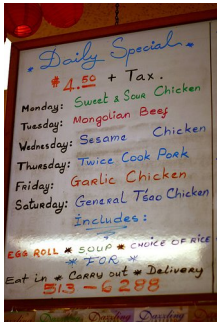 Daily Special
$4.50 + Tax.
Monday: Sweet & Sour Chicken
Tuesday: Mongolian Beef
Wednesday: Sesame Chicken
Thursday: Twice Cook Pork
Friday: Garlic Chicken
Saturday: General Tsao Chicken
Includes:
EGG ROLL * SOUP * CHOICE OF RICE
* FOR *
Eat in * Carry out * Delivery
513-6288
Dazzling Dazzling